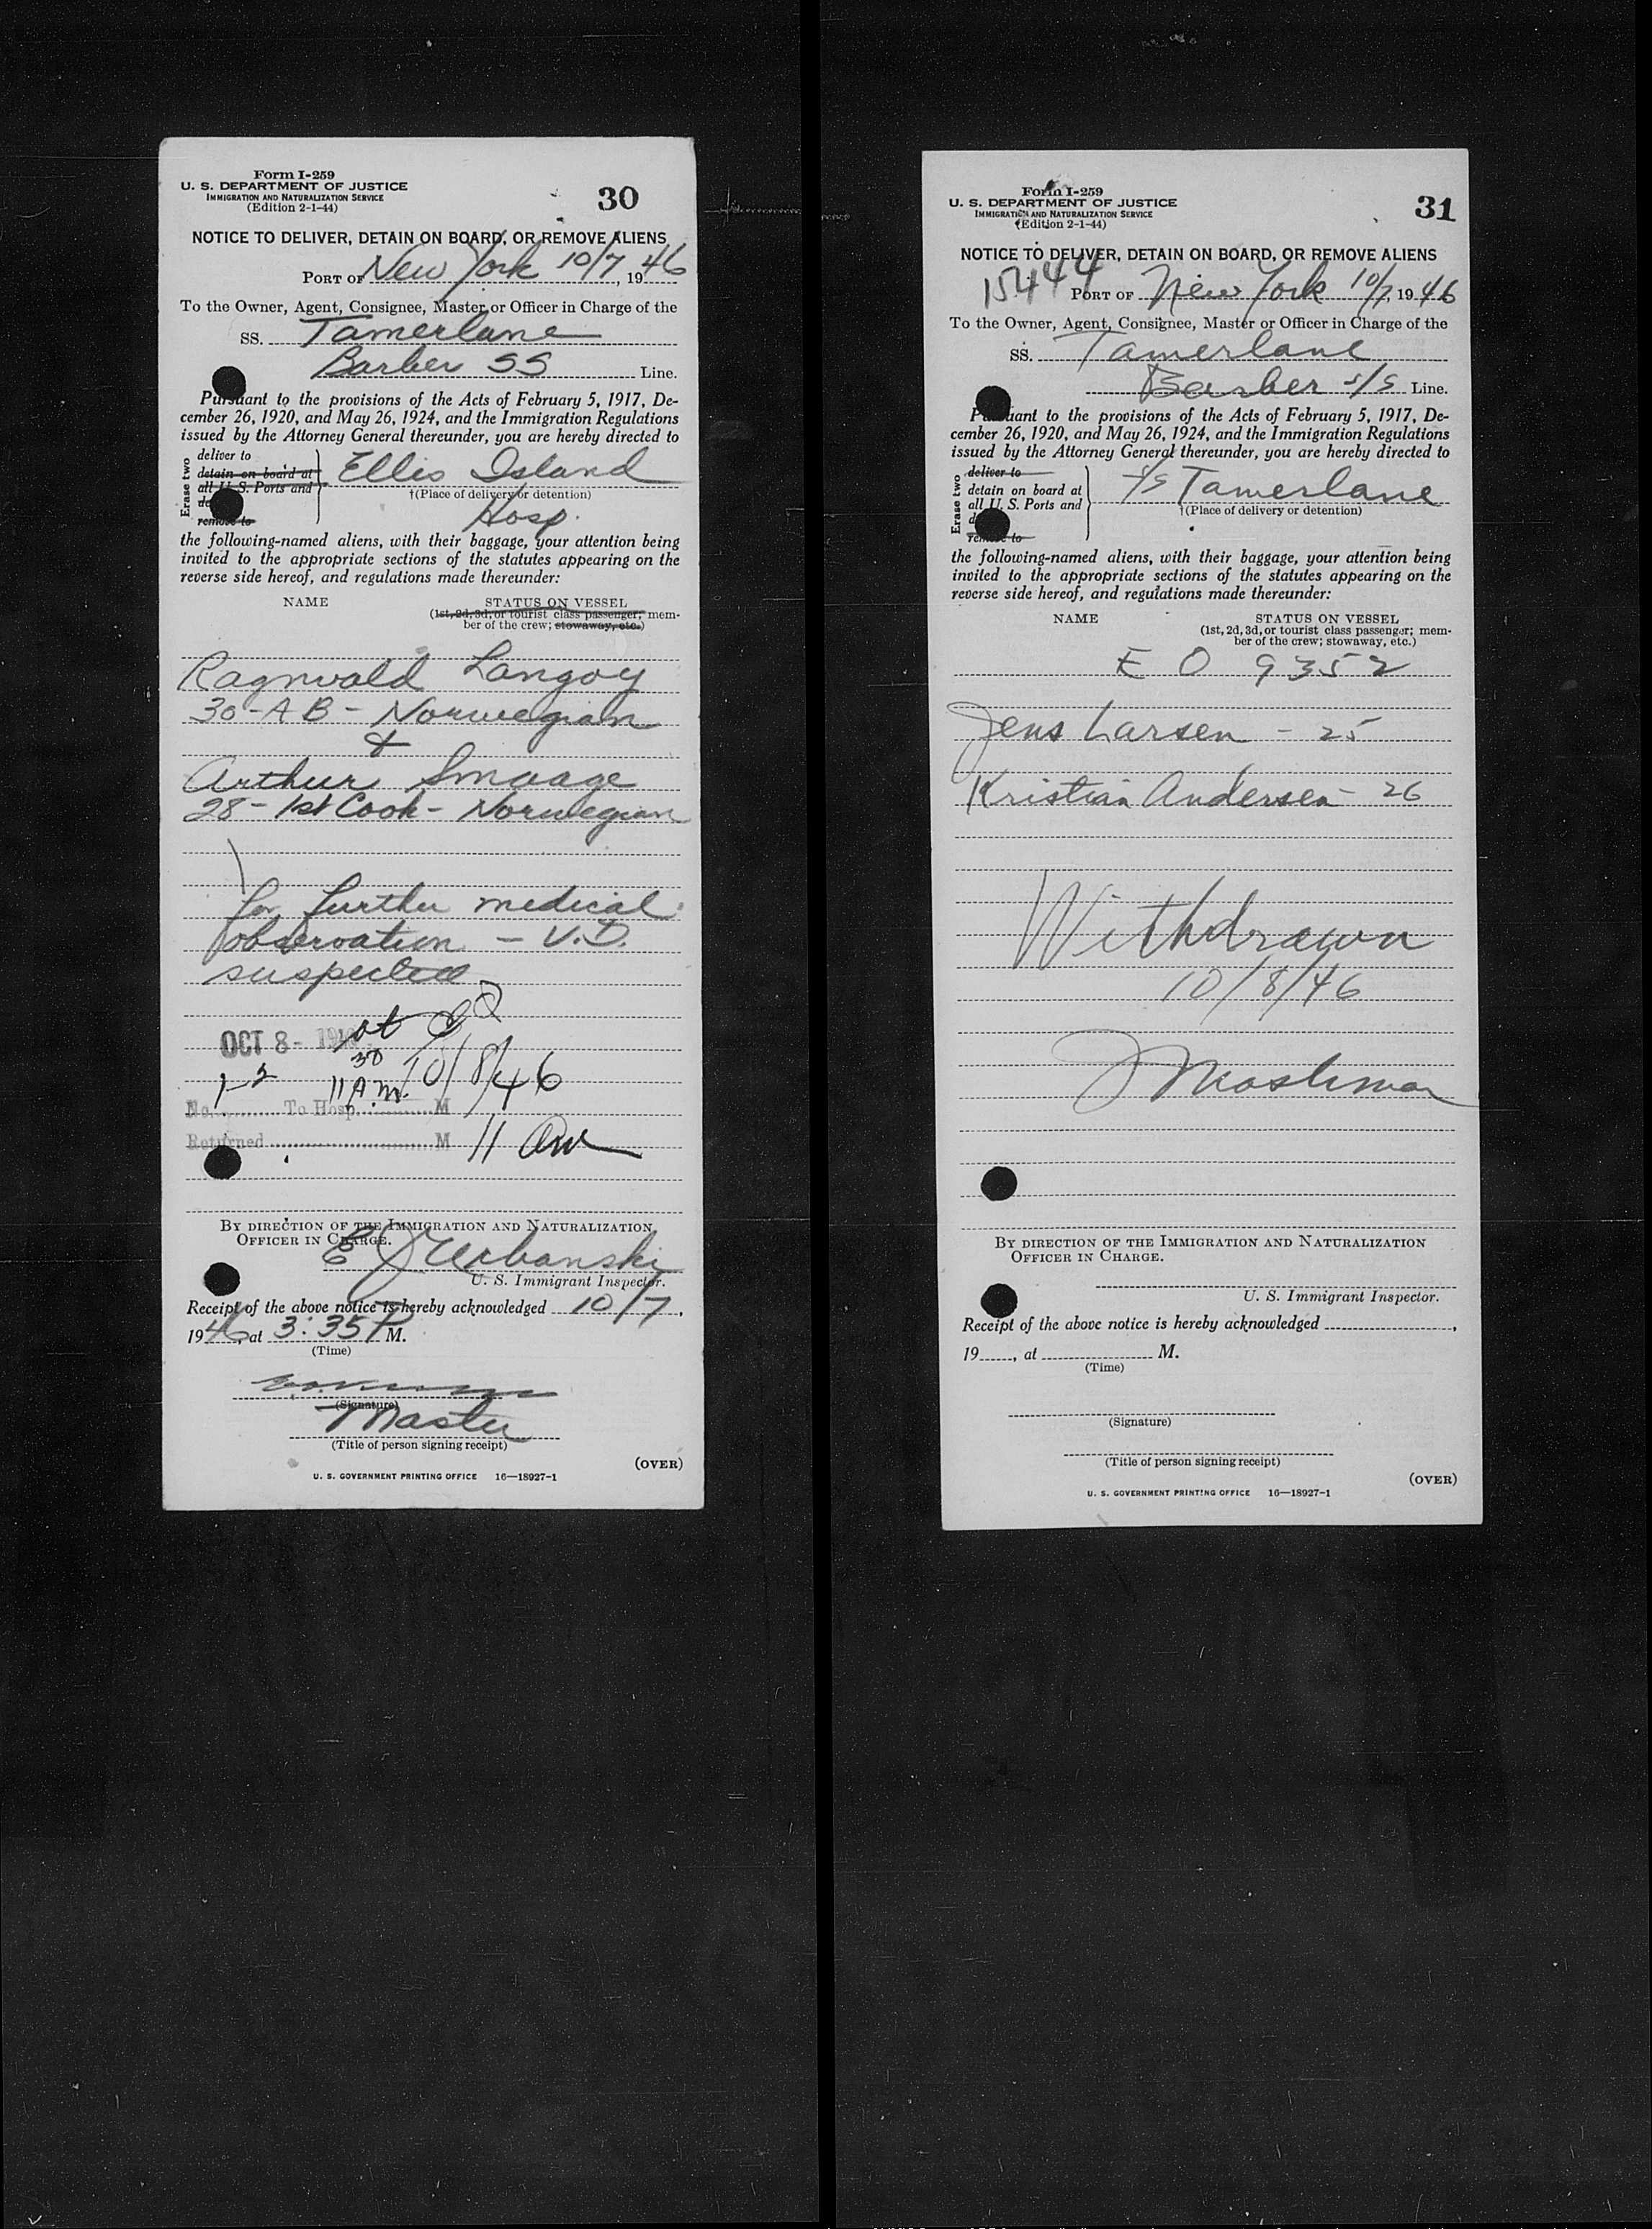 Form I-259
U. S. DEPARTMENT OF JUSTICE
IMMIGRATION AND NATURALIZATION SERVICE
(Edition 2-1-44)
30
NOTICE TO DELIVER, DETAIN ON BOARD, OR REMOVE ALIENS
PORT OF New York 10/7, 1946
To the Owner, Agent, Consignee, Master or Officer in Charge of the
SS. Tamerlane
Barber SS Line.
Pursuant to the provisions of the Acts of February 5, 1917, De-
cember 26, 1920, and May 26, 1924, and the Immigration Regulations
issued by the Attorney General thereunder, you are hereby directed to
Erase two
deliver to
detain on board at
all U. S. Ports and
remove to
Ellis Island
†(Place of delivery or detention)
Hosp.
the following-named aliens, with their baggage, your attention being
invited to the appropriate sections of the statutes appearing on the
reverse side hereof, and regulations made thereunder:
NAME STATUS ON VESSEL
(1st, 2d, 3d, or tourist class passenger; mem-
ber of the crew; stowaway, etc.)
Ragnvald Langoy
30-AB-Norwegian
&
Arthur Smaage
28-1st Cook-Norwegian
for further medical
observation - V.D.
suspected
OCT 8- at
1-2 11 30 A.M. 10/8/46
No. To Hosp. M
Returned M 11 am
BY DIRECTION OF THE IMMIGRATION AND NATURALIZATION
OFFICER IN CHARGE.
E J Urbanski
U. S. Immigrant Inspector.
Receipt of the above notice is hereby acknowledged 10/7,
1946, at 3:35 P M.
(Time)
(Signature)
Master
(Title of person signing receipt)
(OVER)
U. S. GOVERNMENT PRINTING OFFICE 16—18927-1
Form I-259
U. S. DEPARTMENT OF JUSTICE
IMMIGRATION AND NATURALIZATION SERVICE
(Edition 2-1-44)
31
NOTICE TO DELIVER, DETAIN ON BOARD, OR REMOVE ALIENS
15444 PORT OF New York 10/7, 1946
To the Owner, Agent, Consignee, Master or Officer in Charge of the
SS. Tamerlane
Barber S/S Line.
Pursuant to the provisions of the Acts of February 5, 1917, De-
cember 26, 1920, and May 26, 1924, and the Immigration Regulations
issued by the Attorney General thereunder, you are hereby directed to
Erase two
deliver to
detain on board at
all U. S. Ports and
remove to
Tamerlane
†(Place of delivery or detention)
the following-named aliens, with their baggage, your attention being
invited to the appropriate sections of the statutes appearing on the
reverse side hereof, and regulations made thereunder:
NAME STATUS ON VESSEL
(1st, 2d, 3d, or tourist class passenger; mem-
ber of the crew; stowaway, etc.)
E O 9352
Jens Larsen - 25
Kristian Andersen - 26
Withdrawn
10/8/46
BY DIRECTION OF THE IMMIGRATION AND NATURALIZATION
OFFICER IN CHARGE.
U. S. Immigrant Inspector.
Receipt of the above notice is hereby acknowledged ,
19 , at M.
(Time)
(Signature)
(Title of person signing receipt)
(OVER)
U. S. GOVERNMENT PRINTING OFFICE 16—18927-1